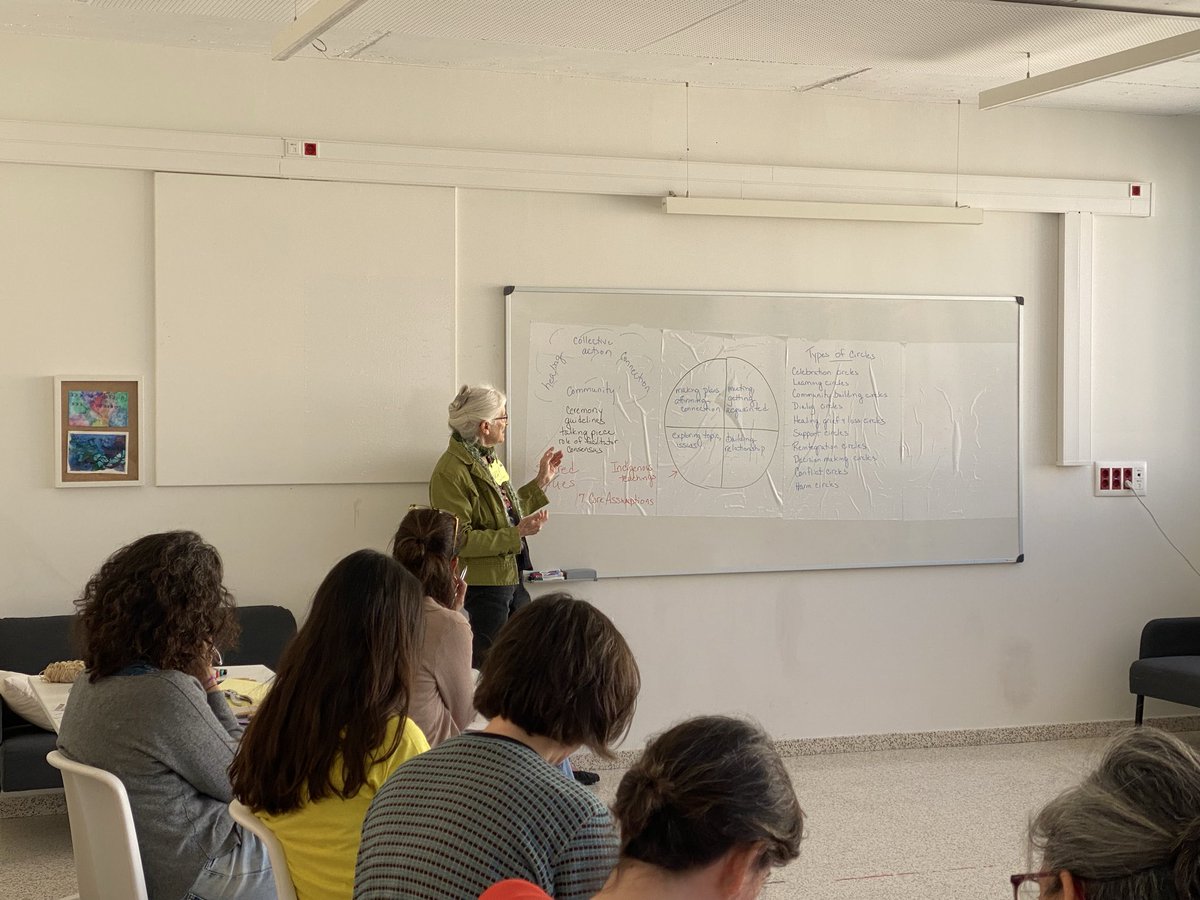 collective
action
healing
connection
Community
Ceremony
guidelines
talking piece
role of facilitator
Consensus
Indigenous
teachings
7 Core Assumptions
making plans,
affirming
connection
meeting,
getting
acquainted
exploring topic,
issues
building
relationship
Types of Circles
Celebration circles
Learning circles
Community building circles
Dialog circles
Healing grief + loss circles
Support circles
Reintegration circles
Decision making circles
Conflict circles
Harm circles